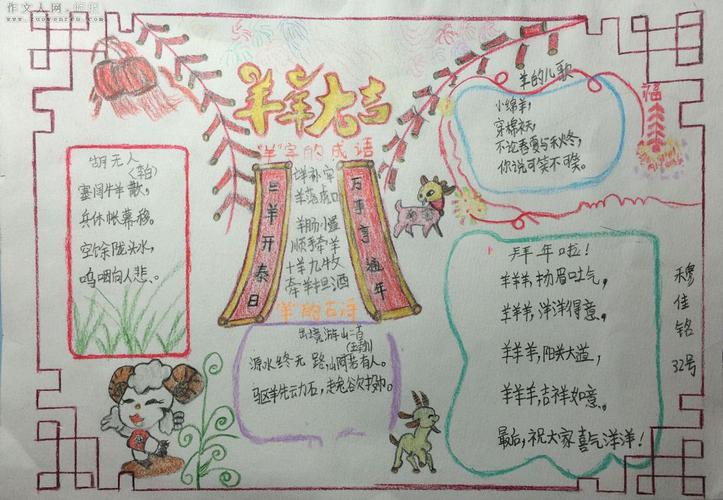 作文人网
羊羊大吉
"羊"字的成语
亡羊补牢
羊落虎口
羊肠小道
顺手牵羊
十羊九牧
牵羊担酒
三羊开泰日
万事亨通年
胡无人
(李白)
塞阔牛羊散,
兵休帐幕移。
空馀陇头水,
呜咽向人悲、。
"羊"的古诗
出境游山二首
(王勃)
源水终无路,山阿若有人。
驱羊先动石,走兔欲投巾。
羊的儿歌
小绵羊,
穿棉袄,
不论春夏与秋冬,
你说可笑不可笑。
福
拜年啦!
羊羊羊,扬眉吐气,
羊羊羊,洋洋得意,
羊羊羊,阳关大道,
羊羊羊,吉祥如意、。
最后,祝大家喜气洋洋!
穆佳铭
32号